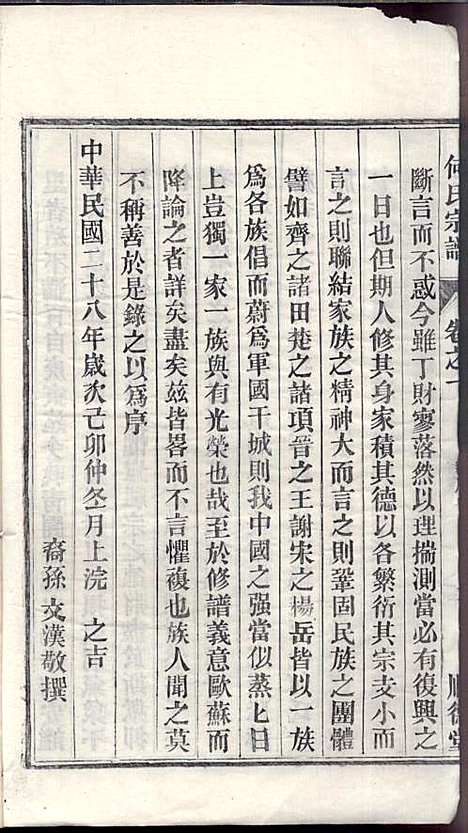 何氏宗譜 卷之一 順德堂
斷言而不惑今雖丁財寥落然以理揣測當必有復興之
一日也但期人修其身家積其德以各繁衍其宗支小而
言之則聯結家族之精神大而言之則鞏固民族之團體
譬如齊之諸田楚之諸項晉之王謝宋之楊岳皆以一族
爲各族倡而蔚爲軍國干城則我中國之强當似蒸匕日
上豈獨一家一族與有光榮也哉至於修譜義意歐蘇而
降論之者詳矣盡矣兹皆畧而不言懼複也族人聞之莫
不稱善於是錄之以爲序
中華民國二十八年歲次己卯仲冬月上浣 之吉
裔孫 文漢敬撰